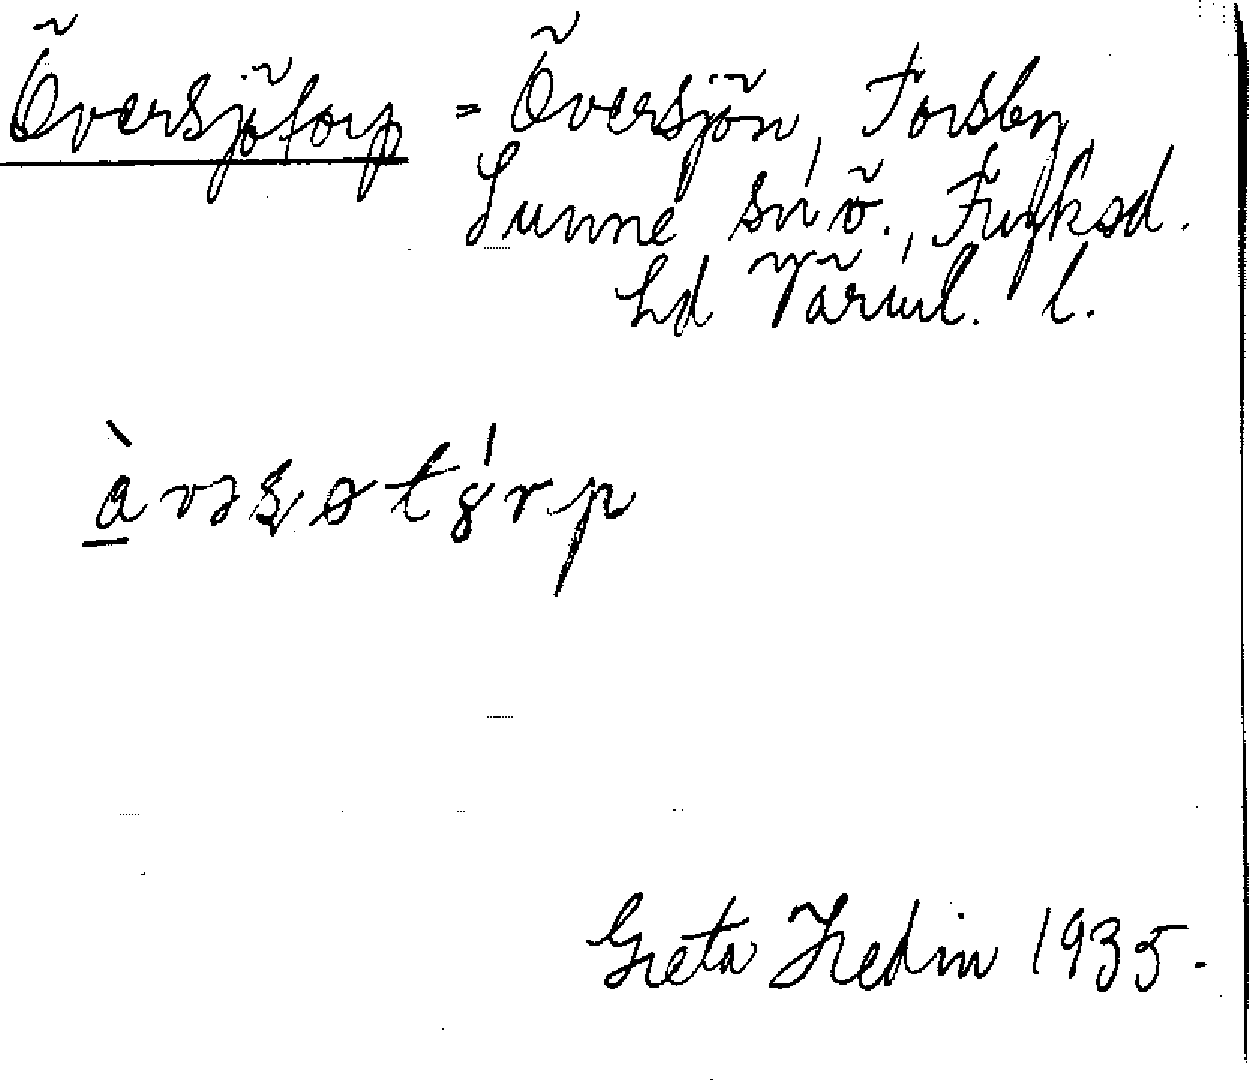 Översjötorp = Översjön, Torsby,
Sunne sn ö., Fryksd.
hd Värml. l.
àvəʂøtórp
Greta Hedin 1935.